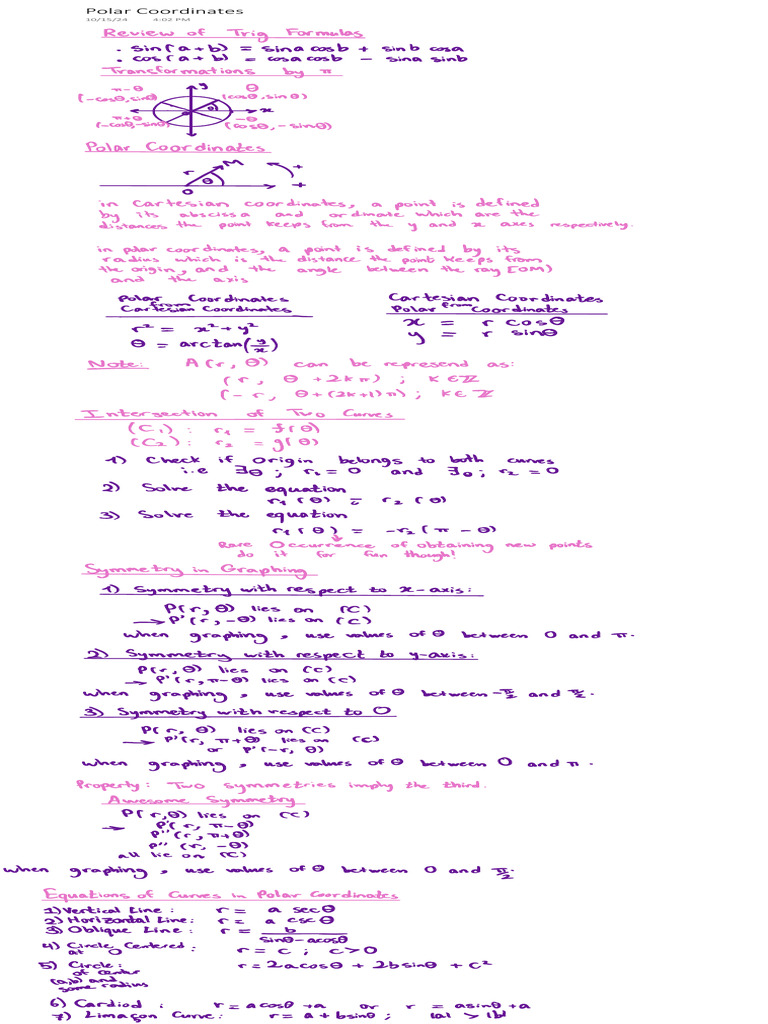 Polar Coordinates
10/15/24 4:02 PM
Review of Trig Formulas
. sin(a+b) = sina cosb + sinb cosa
. cos(a+b) = cosa cosb - sina sinb
Transformations by π
y
π-θ θ
(-cosθ,sinθ) (cosθ,sinθ)
θ x
π+θ -θ
(-cosθ,-sinθ) (cosθ,-sinθ)
Polar Coordinates
M +
r θ
O +
in Cartesian coordinates, a point is defined
by its abscissa and ordinate which are the
distances the point keeps from the y and x axes respectively.
in polar coordinates, a point is defined by its
radius which is the distance the point keeps from
the origin, and the angle between the ray [OM)
and the axis
Polar Coordinates Cartesian Coordinates
from from
Cartesian Coordinates Polar Coordinates
r² = x²+y² x = r cosθ
θ = arctan(y/x) y = r sinθ
Note: A(r, θ) can be represend as:
(r, θ+2kπ) ; k∈ℤ
(-r, θ+(2k+1)π) ; k∈ℤ
Intersection of Two Curves
(C₁) : r₁ = f(θ)
(C₂) : r₂ = g(θ)
1) Check if Origin belongs to both curves
i.e ∃θ ; r₁=0 and ∃θ ; r₂=0
2) Solve the equation
r₁(θ) = r₂(θ)
3) Solve the equation
r₁(θ) = -r₂(π-θ)
Rare Occurrence of obtaining new points
do it for fun though!
Symmetry in Graphing
1) Symmetry with respect to x-axis:
P(r, θ) lies on (C)
→ P'(r, -θ) lies on (C)
when graphing, use values of θ between 0 and π.
2) Symmetry with respect to y-axis:
P(r, θ) lies on (C)
→ P'(r, π-θ) lies on (C)
when graphing, use values of θ between -π/2 and π/2.
3) Symmetry with respect to O
P(r, θ) lies on (C)
→ P'(r, π+θ) lies on (C)
or P'(-r, θ)
when graphing, use values of θ between 0 and π.
Property: Two symmetries imply the third.
Awesome Symmetry
P(r,θ) lies on (C)
→ P'(r, π-θ)
P''(r, π+θ)
P'''(r, -θ)
all lie on (C)
when graphing, use values of θ between 0 and π/2.
Equations of Curves in Polar Coordinates
1) Vertical Line: r = a secθ
2) Horizontal Line: r = a cscθ
3) Oblique Line: r = b/(sinθ-acosθ)
4) Circle Centered: r = c ; c>0
at O
5) Circle: r=2acosθ + 2bsinθ + c²
of center
(a,b) and
some radius
6) Cardiod : r=acosθ+a or r = asinθ+a
7) Limaçon Curve: r=a+bsinθ ; |a| > |b|